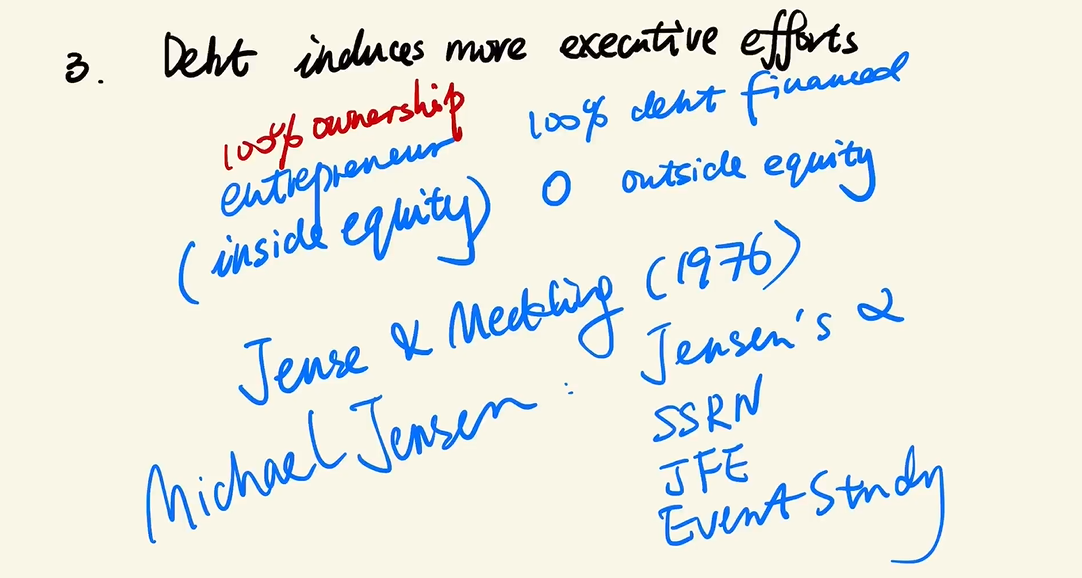 3. Debt induces more executive efforts
100% ownership
entrepreneur 100% debt financed
(inside equity) 0 outside equity
Jense & Meckling (1976)
Michael Jensen: Jensen's α
SSRN
JFE
Event Study